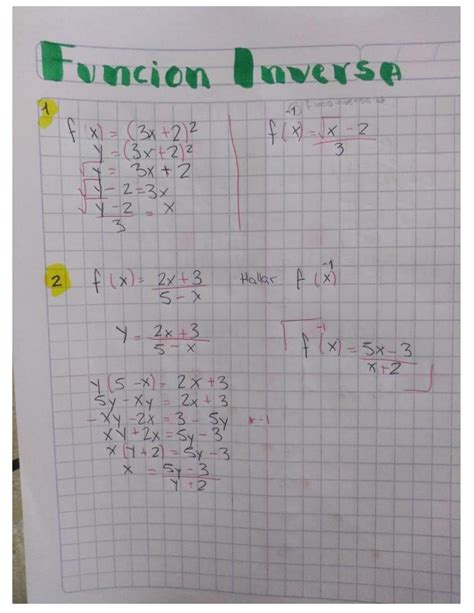 Funcion Inversa
1
f(x) = (3x+2)²
y = (3x+2)²
√y = 3x + 2
√y - 2 = 3x
√y - 2 / 3 = x
f⁻¹(x) = √x - 2 / 3
2 f(x) = 2x+3 / 5-x Hallar f⁻¹(x)
y = 2x+3 / 5-x
y(5-x) = 2x+3
5y - xy = 2x+3
-xy - 2x = 3 - 5y *-1
xy + 2x = 5y - 3
x(y+2) = 5y - 3
x = 5y - 3 / y+2
f⁻¹(x) = 5x - 3 / x+2